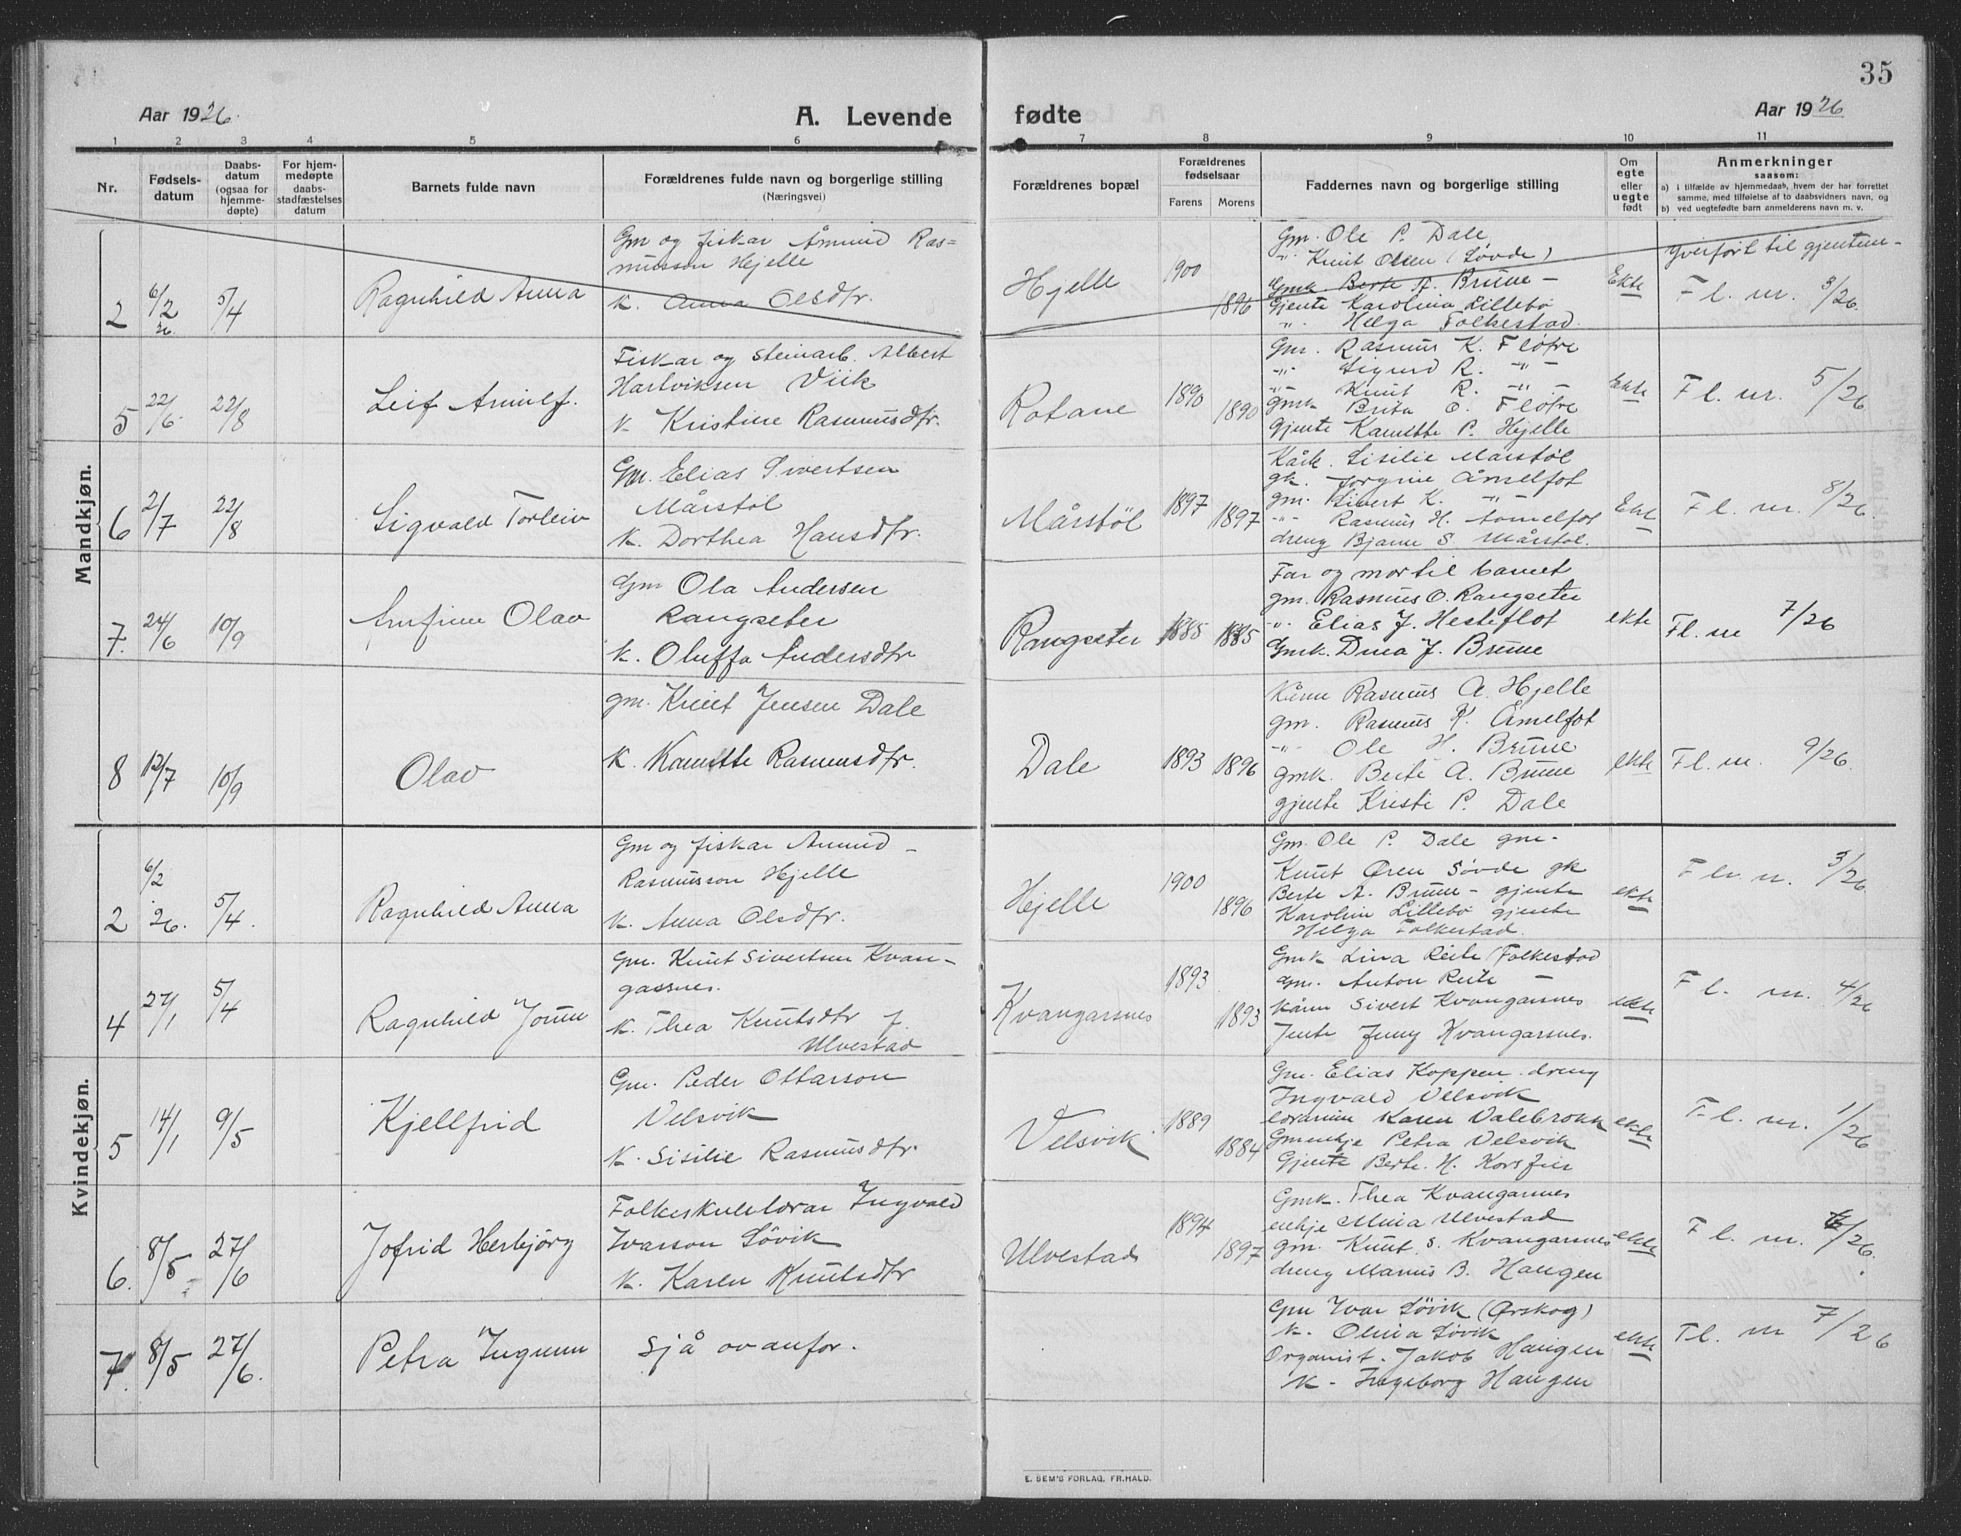 35
Aar 1926.
A. Levende
fødte
Aar 1926
1 2 3 4 5 6 7 8 9 10 11
Nr.
Fødsels-
datum
Daabs-
datum
(ogsaa for
hjemme-
døpte)
For hjem-
medøpte
daabs-
stadfæstelses
datum
Barnets fulde navn
Forældrenes fulde navn og borgerlige stilling
(Næringsvei)
Forældrenes bopæl
Forældrenes
fødselsaar
Farens Morens
Faddernes navn og borgerlige stilling
Om
egte
eller
uegte
født
Anmerkninger
saasom:
a) i tilfælde av hjemmedaab, hvem der har forrettet
samme, med tilføielse af to daabsvidners navn, og
b) ved uegtefødte barn anmelderens navn m. v.
Mandkjøn.
2 6/2 26 5/4 Ragnhild Anna
Gm og fiskar Åmund Ras=
musson Hjelle
k. Anna Olsdtr.
Hjelle 1900 1896
Gm. Ole P. Dale
" Knut Olsen (Søvde)
Gmk Berte A. Brune -
Gjente Karolina Lillebø
" Helga Folkestad.
Ekte
yverført til gjentene-
Fl. nr. 3/26.
5 22/6 22/8 Leif Arnulf.
Fiskar og steinarb. Albert
Hartviksen Viik
k Kristine Rasmusdtr.
Rotane 1890 1890
Gm. Rasmus K. Fløtre
-"- Sigurd R. -"-
-"- Knut R. -"-
gmk Brita O. Fløtre
Gjente Kamette P. Hjelle
Ekte
Fl. nr. 5/26
6 2/7 22/8 Sigvald Torleiv
Gm. Elias Sivertsen
Mårstøl
k. Dorthea Hansdtr.
Mårstøl 1897 1897
Kårk. Sisilie Mårstøl
gk. Jorgine Åmelfot
gm. Sivert K. "
" Rasmus H. Aamelfot
dreng Bjarne S Mårstøl.
Ekte
Fl. nr. 8/26.
7. 24/6 10/9 Arnfinn Olav
Gm Ola Andersen
Rangseter
k. Oluffa Andersdtr
Rangseter 1885 1885
Far og mor til barnet
gm. Rasmus O. Rangseter
-"- Elias J. Hesteflot
Gmk. Dina J. Brune
ekte
Fl. nr 7/26
8 12/7 10/9 Olav
gm. Knut Jensen Dale
k. Kamette Rasmusdtr.
Dale 1893 1896
Kårm Rasmus A. Hjelle
gm. Rasmus K. Åmelfot
-"- Ole H. Brune
gmk. Berte A. Brune
gjente Kristi P. Dale
ekte
Fl. nr. 9/26.
Kvindekjøn.
2 6/2 26. 5/4. Ragnhild Anna
Gm og fiskar Åmund -
Rasmusson Hjelle
k. Anna Olsdtr.
Hjelle 1900 1896
Gm. Ole P. Dale gm-
Knut Øren Søvde gk
Berte A. Brune - gjente
Karolin Lillebø gjente
Helga Folkestad.
ekte
Fl. nr. 3/26
4 27/1 5/4 Ragnhild Jorun
Gm. Knut Sivertsen Kvan-
garsnes.
k. Thea Knutsdtr f.
Ulvestad
Kvangarsnes 1893 1893
Gmk Lina Reite (Folkestad
gm. Anton Reite -
Kårm Sivert Kvangarsnes
Jente Jenny Kvangarsnes.
ekte
Fl. nr. 4/26
5 14/1 9/5 Kjellfrid
Gm. Peder Ottarson
Velsvik
k. Sisilie Rasmusdtr.
Velsvik 1889 1884
Gm. Elias Koppen. dreng
Ingvald Velsvik
Karen Valebrokk
Gmenkje Petra Velsvik
Gjente Berte. H. Korsfur
ekte
Fl. nr. 1/26
6. 8/5 27/6 Jofrid Herbjörg
Folkeskulelærar Ingvald
Ivarson Løvik
k. Karen Knutsdtr
Ulvestad 1894 1897
Gmk. Thea Kvangarnes
enkje Mina Ulvestad
gm. Knut. S. Kvangarsnes
dreng Marius B. Haugen
ekte
Fl. nr. 6/26.
7. 8/5 27/6. Petra Ingunn
sjå ovanfor.
Gm Ivar Løvik (Ørskog)
k. Olina Løvik
Organist. Jakob Haugen
k - Ingeborg Haugen
ekte
Fl. nr 7/26
E. SEM'S FORLAG, FR.HALD.